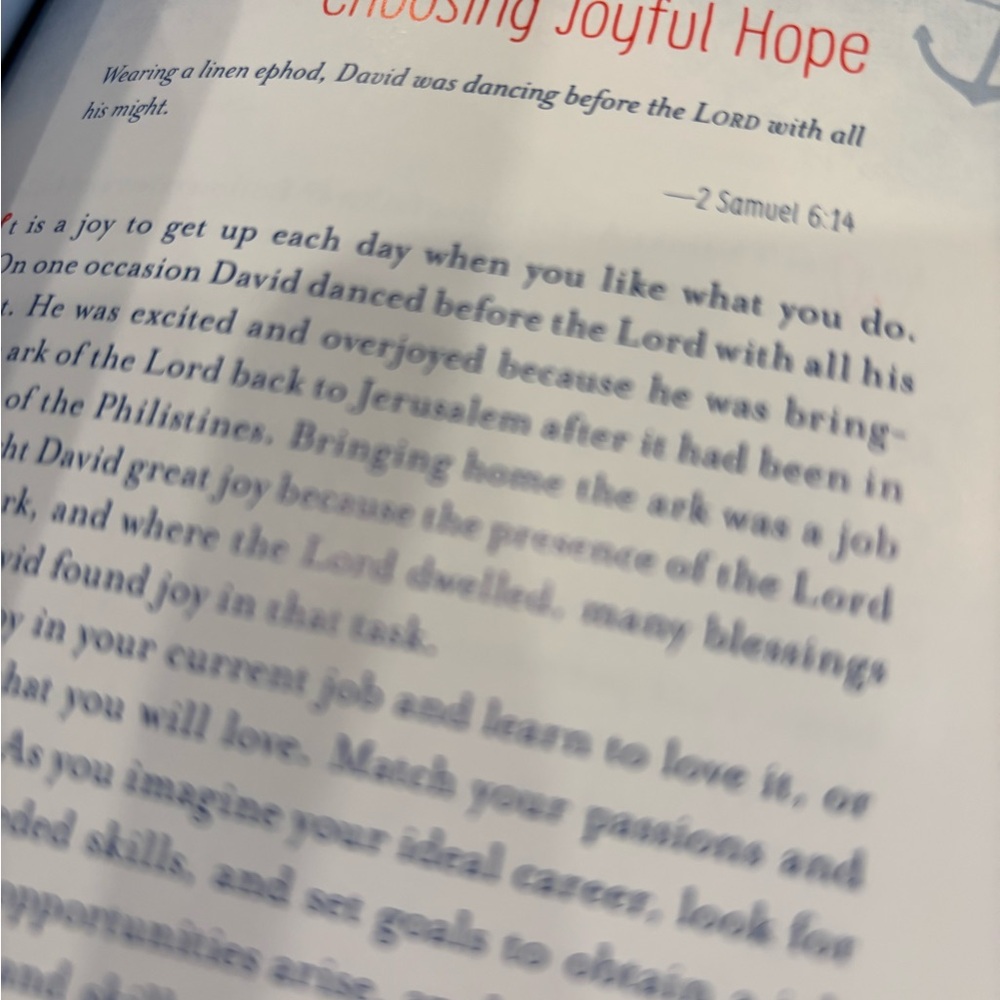 Choosing Joyful Hope
Wearing a linen ephod, David was dancing before the LORD with all
his might.
—2 Samuel 6:14
t is a joy to get up each day when you like what you do.
On one occasion David danced before the Lord with all his
t. He was excited and overjoyed because he was bring-
ark of the Lord back to Jerusalem after it had been in
of the Philistines. Bringing home the ark was a job
ht David great joy because the presence of the Lord
rk, and where the Lord dwelled, many blessings
vid found joy in that task.
y in your current job and learn to love it, or
hat you will love. Match your passions and
As you imagine your ideal career, look for
ded skills, and set goals to obtain
opportunities arise,
and